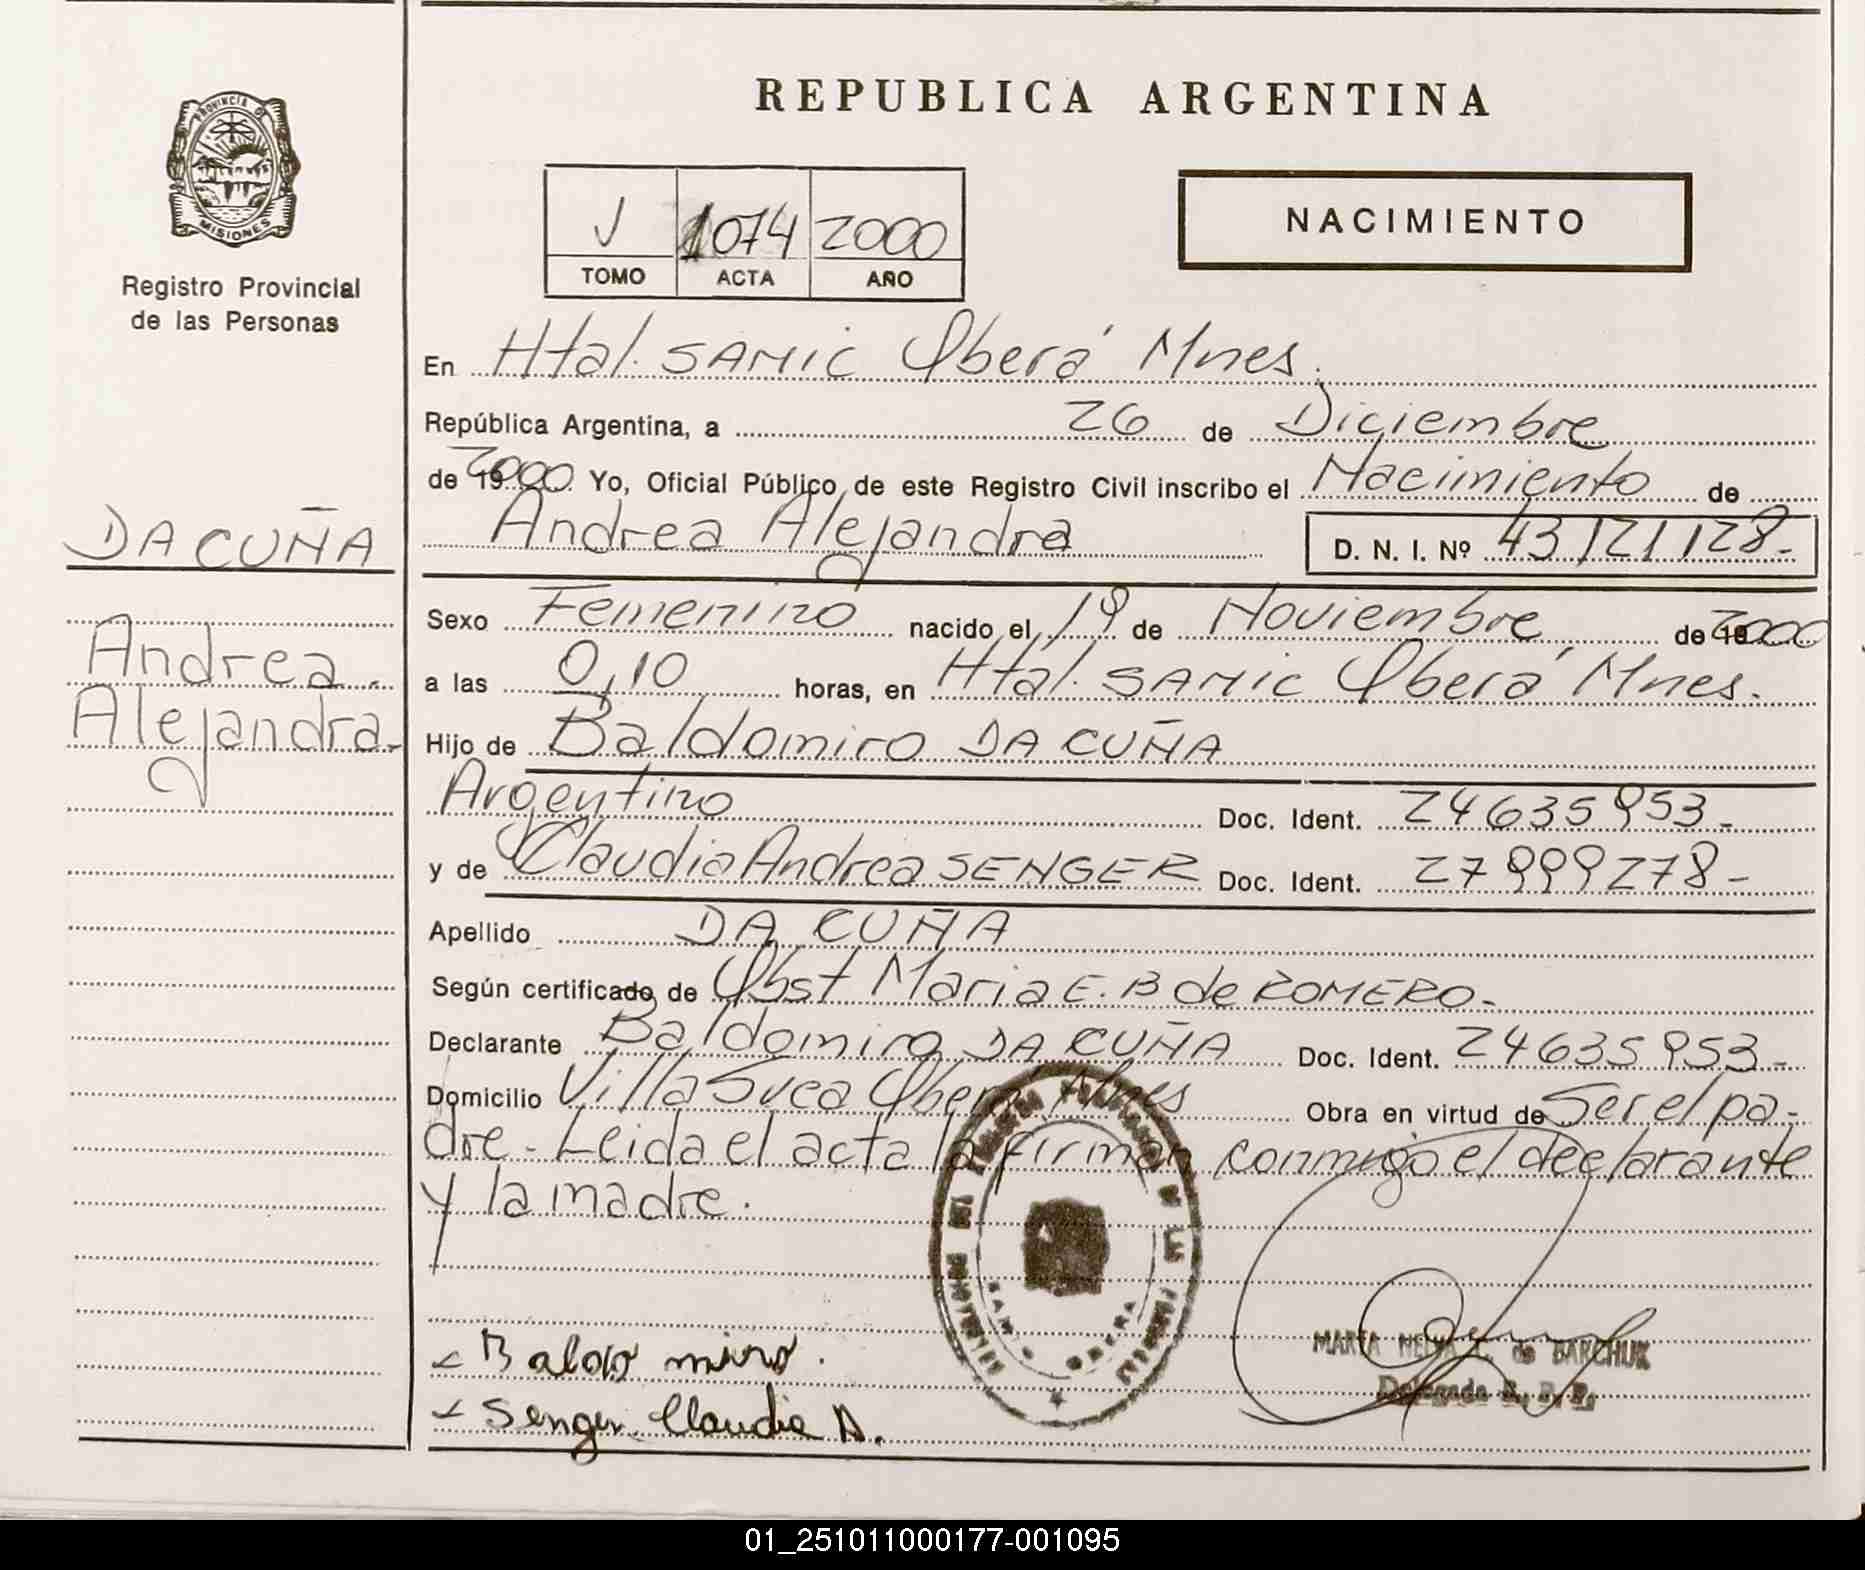 REPUBLICA ARGENTINA
PROVINCIA DE
MISIONES
Registro Provincial
de las Personas
J 1074 2000
TOMO ACTA AÑO
NACIMIENTO
DA CUÑA
Andrea
Alejandra
En Htal. SAMIC Oberá Mnes.
República Argentina, a 26 de Diciembre
de 2000 Yo, Oficial Público de este Registro Civil inscribo el Nacimiento de
Andrea Alejandra D. N. I. Nº 43121128-
Sexo Femenino nacido el 19 de Noviembre de 2000
a las 0,10 horas, en Htal. SAMIC Oberá Mnes.
Hijo de Baldomiro DA CUÑA
Argentino Doc. Ident. 24635953-
y de Claudia Andrea SENGER Doc. Ident. 27999278-
Apellido DA CUÑA
Según certificado de Obst Maria E. B de ROMERO-
Declarante Baldomiro DA CUÑA Doc. Ident. 24635953-
Domicilio Villa Svea Oberá Mnes Obra en virtud de Ser el pa-
dre- Leida el acta la firman conmigo el declarante
y la madre.
Baldomiro.
Senger Claudia A.
MARTA C. de BARCHUK
Delegada R. P. P.
01_251011000177-001095